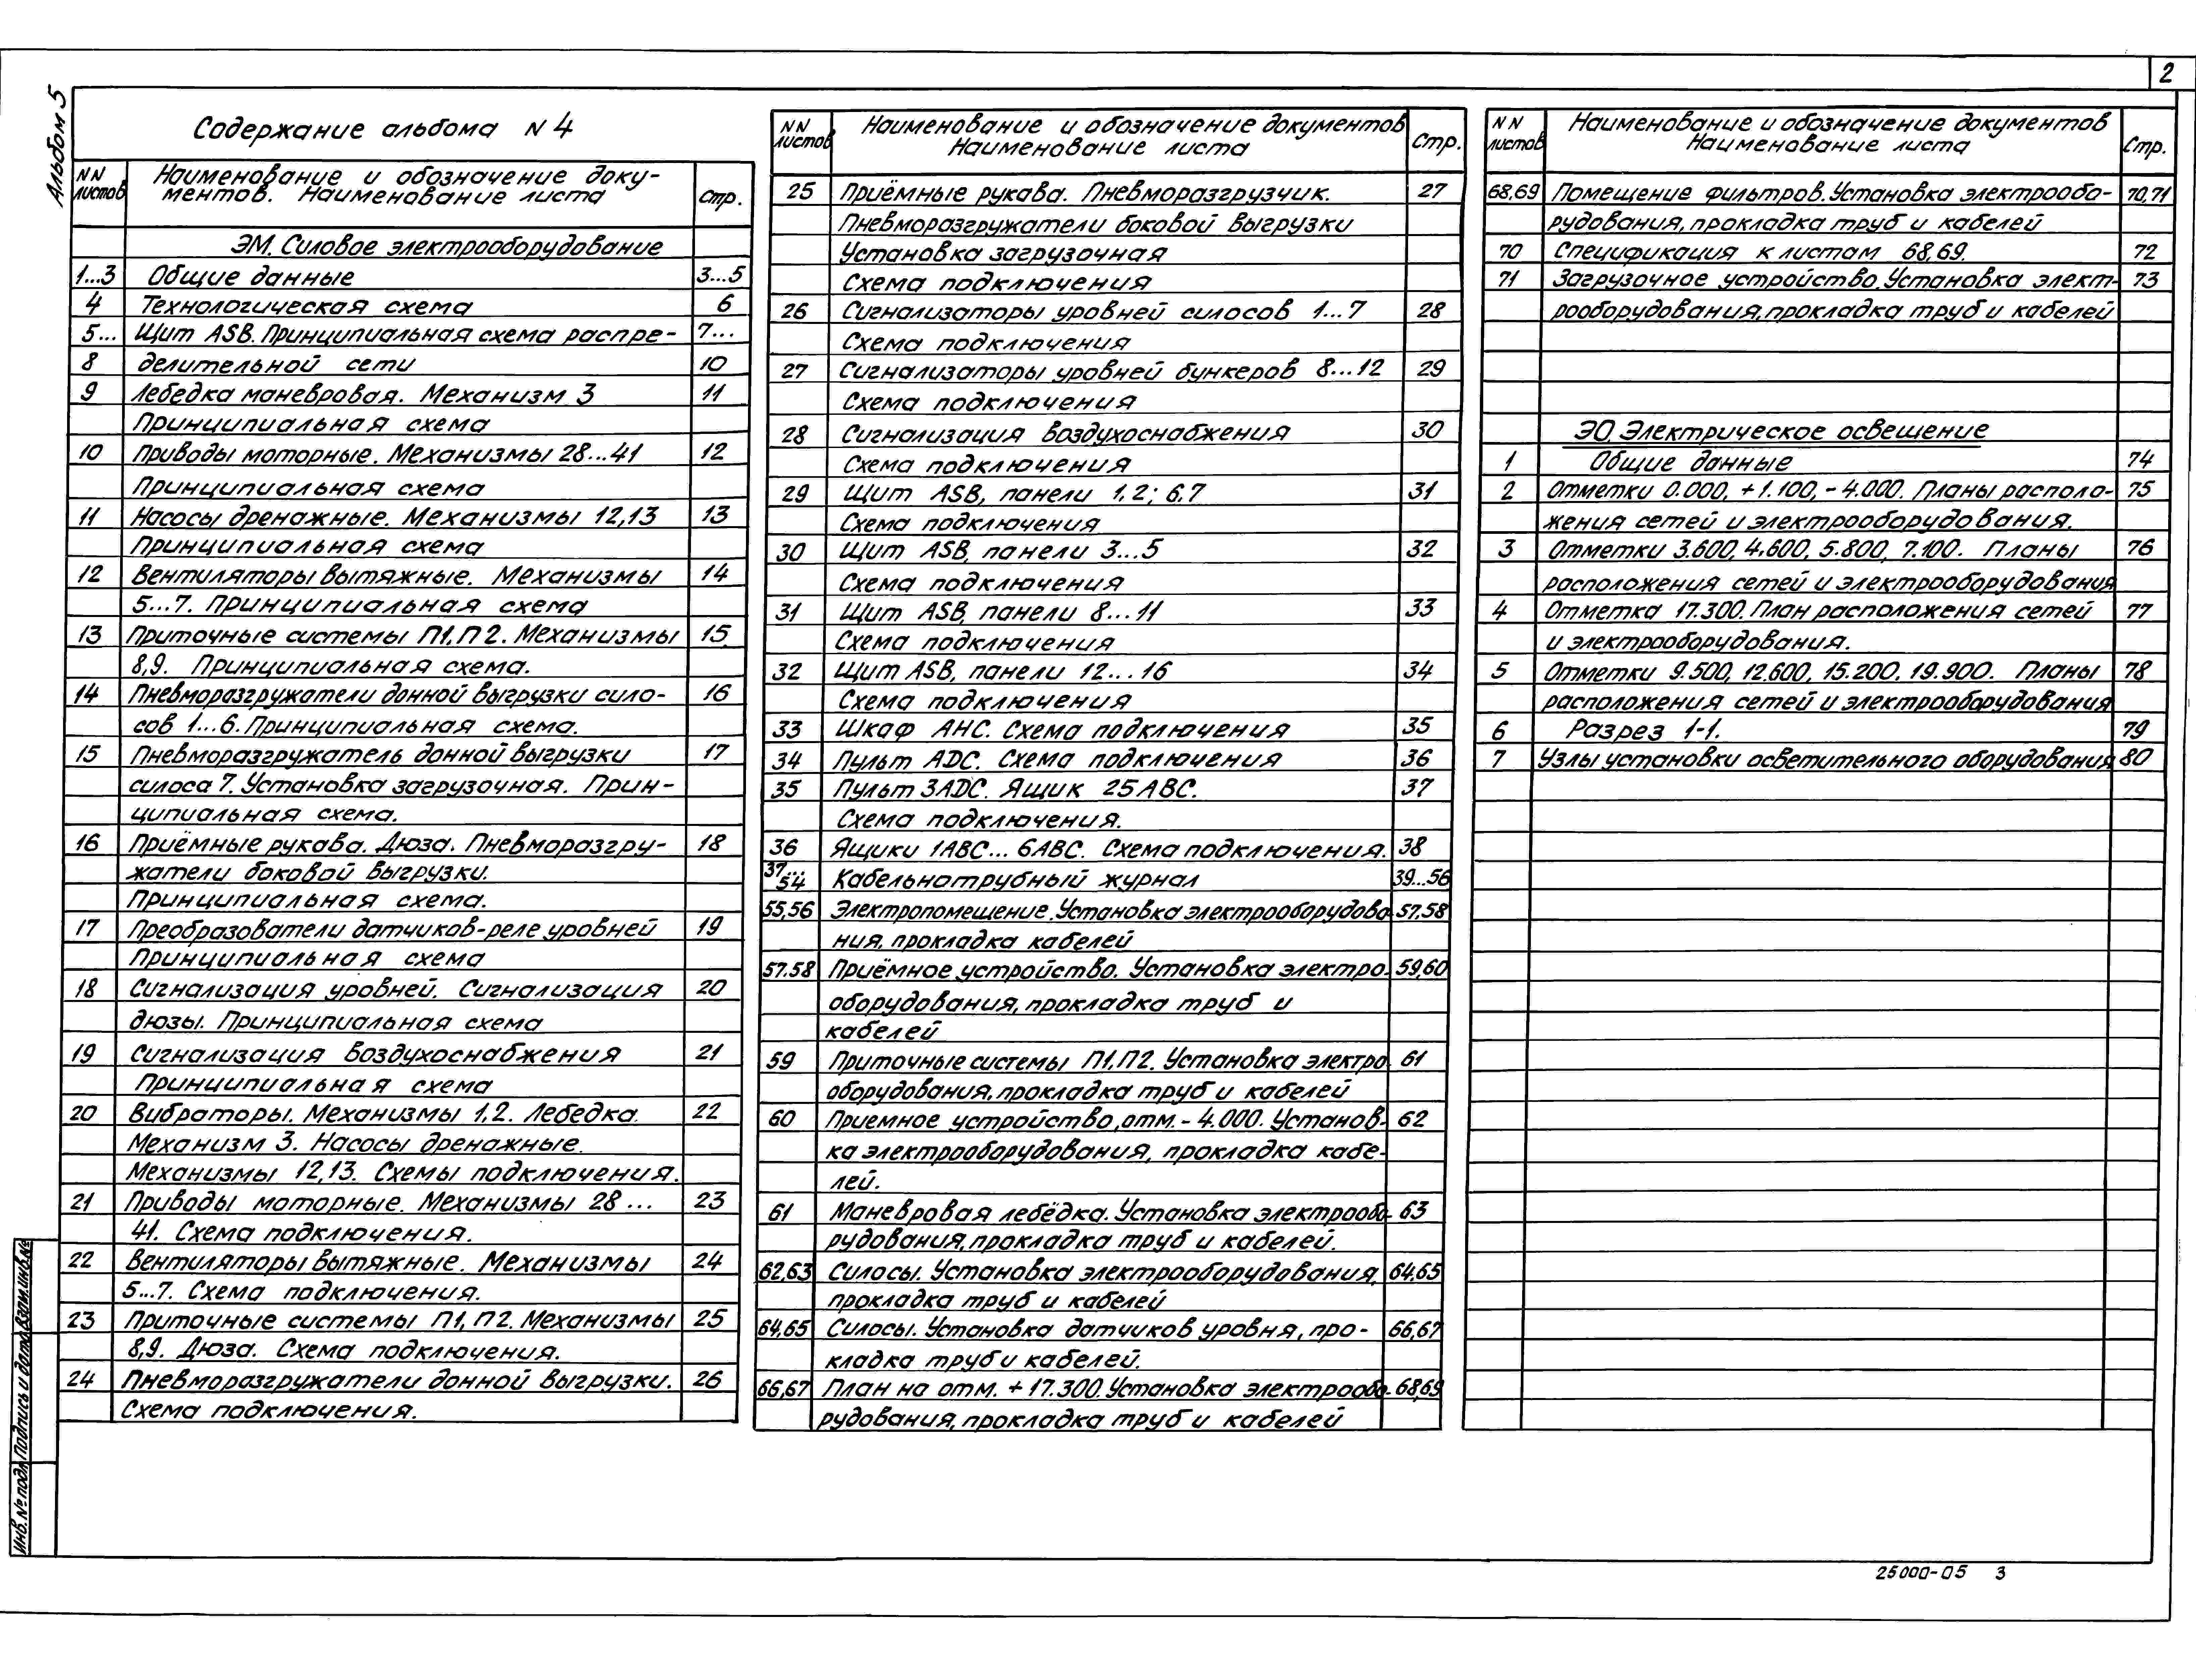 2
Альбом 5
Содержание альбома N 4
NN листов
Наименование и обозначение доку-
ментов. Наименование листа
стр.
ЭМ. Силовое электрооборудование
1...3 Общие данные 3...5
4 Технологическая схема 6
5... Щит ASB. Принципиальная схема распре- 7...
8 делительной сети 10
9 Лебедка маневровая. Механизм 3 11
Принципиальная схема
10 Приводы моторные. Механизмы 28...41 12
Принципиальная схема
11 Насосы дренажные. Механизмы 12,13 13
Принципиальная схема
12 Вентиляторы вытяжные. Механизмы 14
5...7. Принципиальная схема
13 Приточные системы П1, П2. Механизмы 15
8,9. Принципиальная схема.
14 Пневморазгружатели донной выгрузки сило- 16
сов 1...6. Принципиальная схема.
15 Пневморазгружатель донной выгрузки 17
силоса 7. Установка загрузочная. Прин-
ципиальная схема.
16 Приёмные рукава. Дюза. Пневморазгру- 18
жатели боковой выгрузки.
Принципиальная схема.
17 Преобразователи датчиков-реле уровней 19
Принципиальная схема
18 Сигнализация уровней. Сигнализация 20
дюзы. Принципиальная схема
19 Сигнализация воздухоснабжения 21
Принципиальная схема
20 Вибраторы. Механизмы 1,2. Лебедка. 22
Механизм 3. Насосы дренажные.
Механизмы 12,13. Схемы подключения.
21 Приводы моторные. Механизмы 28... 23
41. Схема подключения.
22 Вентиляторы вытяжные. Механизмы 24
5...7. Схема подключения.
23 Приточные системы П1, П2. Механизмы 25
8,9. Дюза. Схема подключения.
24 Пневморазгружатели донной выгрузки. 26
Схема подключения.
NN листов
Наименование и обозначение документов
Наименование листа
Стр.
25 Приёмные рукава. Пневморазгрузчик. 27
Пневморазгружатели боковой выгрузки
Установка загрузочная
Схема подключения
26 Сигнализаторы уровней силосов 1...7 28
Схема подключения
27 Сигнализаторы уровней бункеров 8...12 29
Схема подключения
28 Сигнализация воздухоснабжения 30
Схема подключения
29 Щит ASB, панели 1,2; 6,7 31
Схема подключения
30 Щит ASB, панели 3...5 32
Схема подключения
31 Щит ASB, панели 8...11 33
Схема подключения
32 Щит ASB, панели 12...16 34
Схема подключения
33 Шкаф АНС. Схема подключения 35
34 Пульт ADC. Схема подключения 36
35 Пульт 3ADC. Ящик 25АВС. 37
Схема подключения.
36 Ящики 1АВС... 6АВС. Схема подключения. 38
37...54 Кабельнотрубный журнал 39...56
55,56 Электропомещение. Установка электрооборудова- 57,58
ния, прокладка кабелей
57.58 Приёмное устройство. Установка электро- 59,60
оборудования, прокладка труб и
кабелей
59 Приточные системы П1, П2. Установка электро- 61
оборудования, прокладка труб и кабелей
60 Приемное устройство, отм. - 4.000. Установ- 62
ка электрооборудования, прокладка кабе-
лей.
61 Маневровая лебёдка. Установка электрообо- 63
рудования, прокладка труб и кабелей.
62,63 Силосы. Установка электрооборудования, 64,65
прокладка труб и кабелей
64,65 Силосы. Установка датчиков уровня, про- 66,67
кладка труб и кабелей.
66,67 План на отм. + 17.300. Установка электрообо- 68,69
рудования, прокладка труб и кабелей
NN листов
Наименование и обозначение документов
Наименование листа
Стр.
68,69 Помещение фильтров. Установка электрообо- 70,71
рудования, прокладка труб и кабелей
70 Спецификация к листам 68,69. 72
71 Загрузочное устройство. Установка элект- 73
рооборудования, прокладка труб и кабелей
ЭО. Электрическое освещение
1 Общие данные 74
2 Отметки 0.000, +1.100, -4.000. Планы располо- 75
жения сетей и электрооборудования.
3 Отметки 3.600, 4.600, 5.800, 7.100. Планы 76
расположения сетей и электрооборудования
4 Отметка 17.300. План расположения сетей 77
и электрооборудования.
5 Отметки 9.500, 12.600, 15.200, 19.900. Планы 78
расположения сетей и электрооборудования
6 Разрез 1-1. 79
7 Узлы установки осветительного оборудования 80
Инв.№ подл Подпись и дата Взам.инв.№
25000-05 3